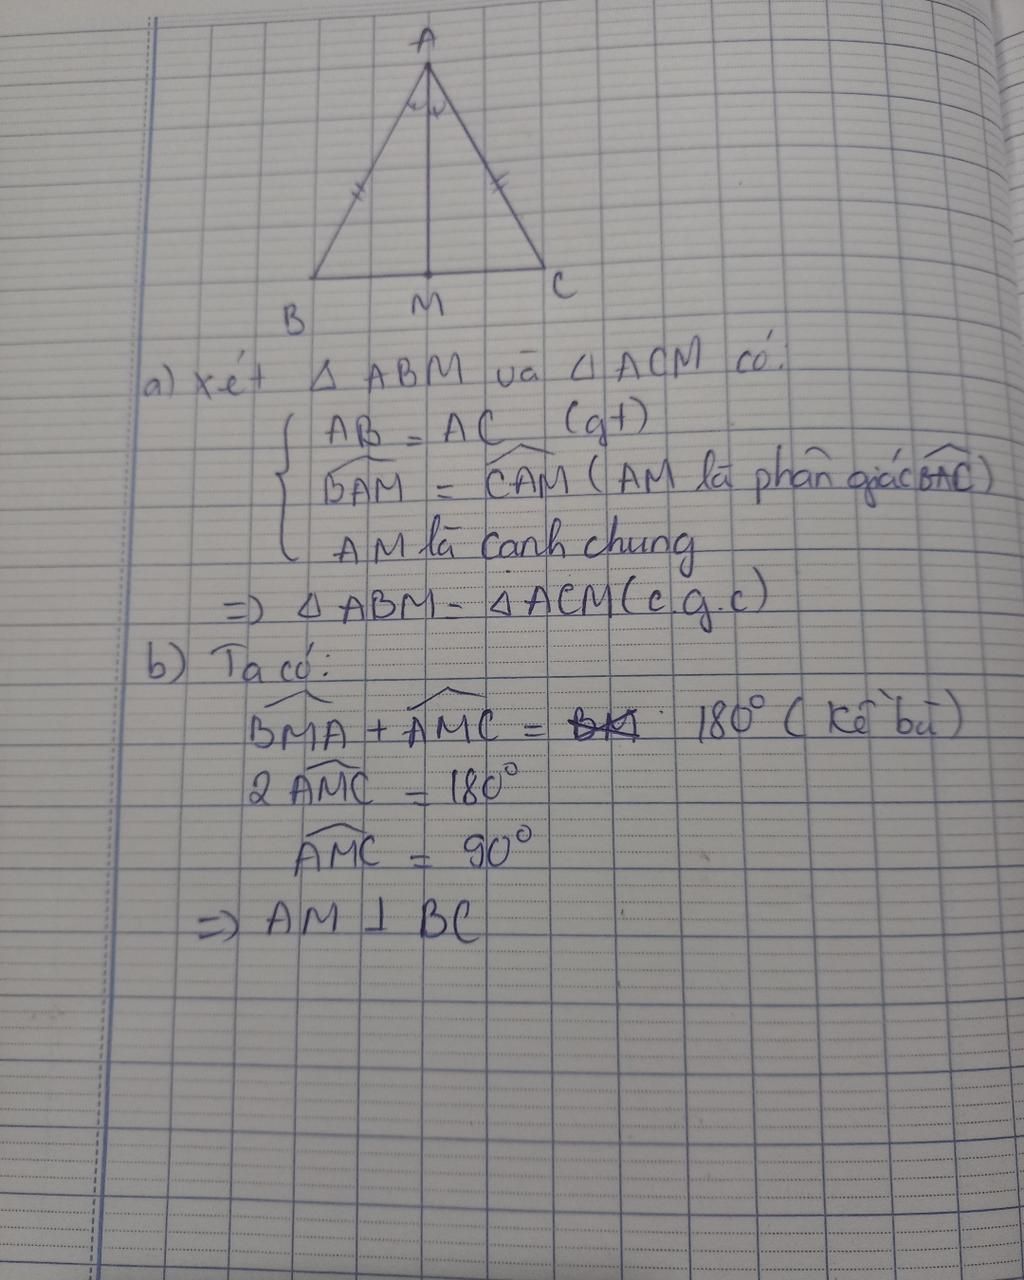 A
B
M
C
a) Xét Δ ABM và Δ ACM có:
AB = AC (gt)
BAM = CAM ( AM là phân giác BAC )
AM là cạnh chung
=> Δ ABM = Δ ACM (c.g.c)
b) Ta có:
BMA + AMC = 180° ( kề bù )
2 AMC = 180°
AMC = 90°
=> AM ⊥ BC